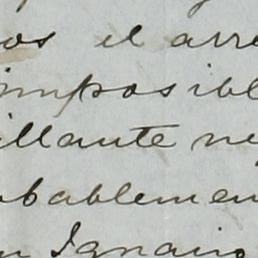 os el arre
imposibl
illante ne
obablemen
n Ignacio